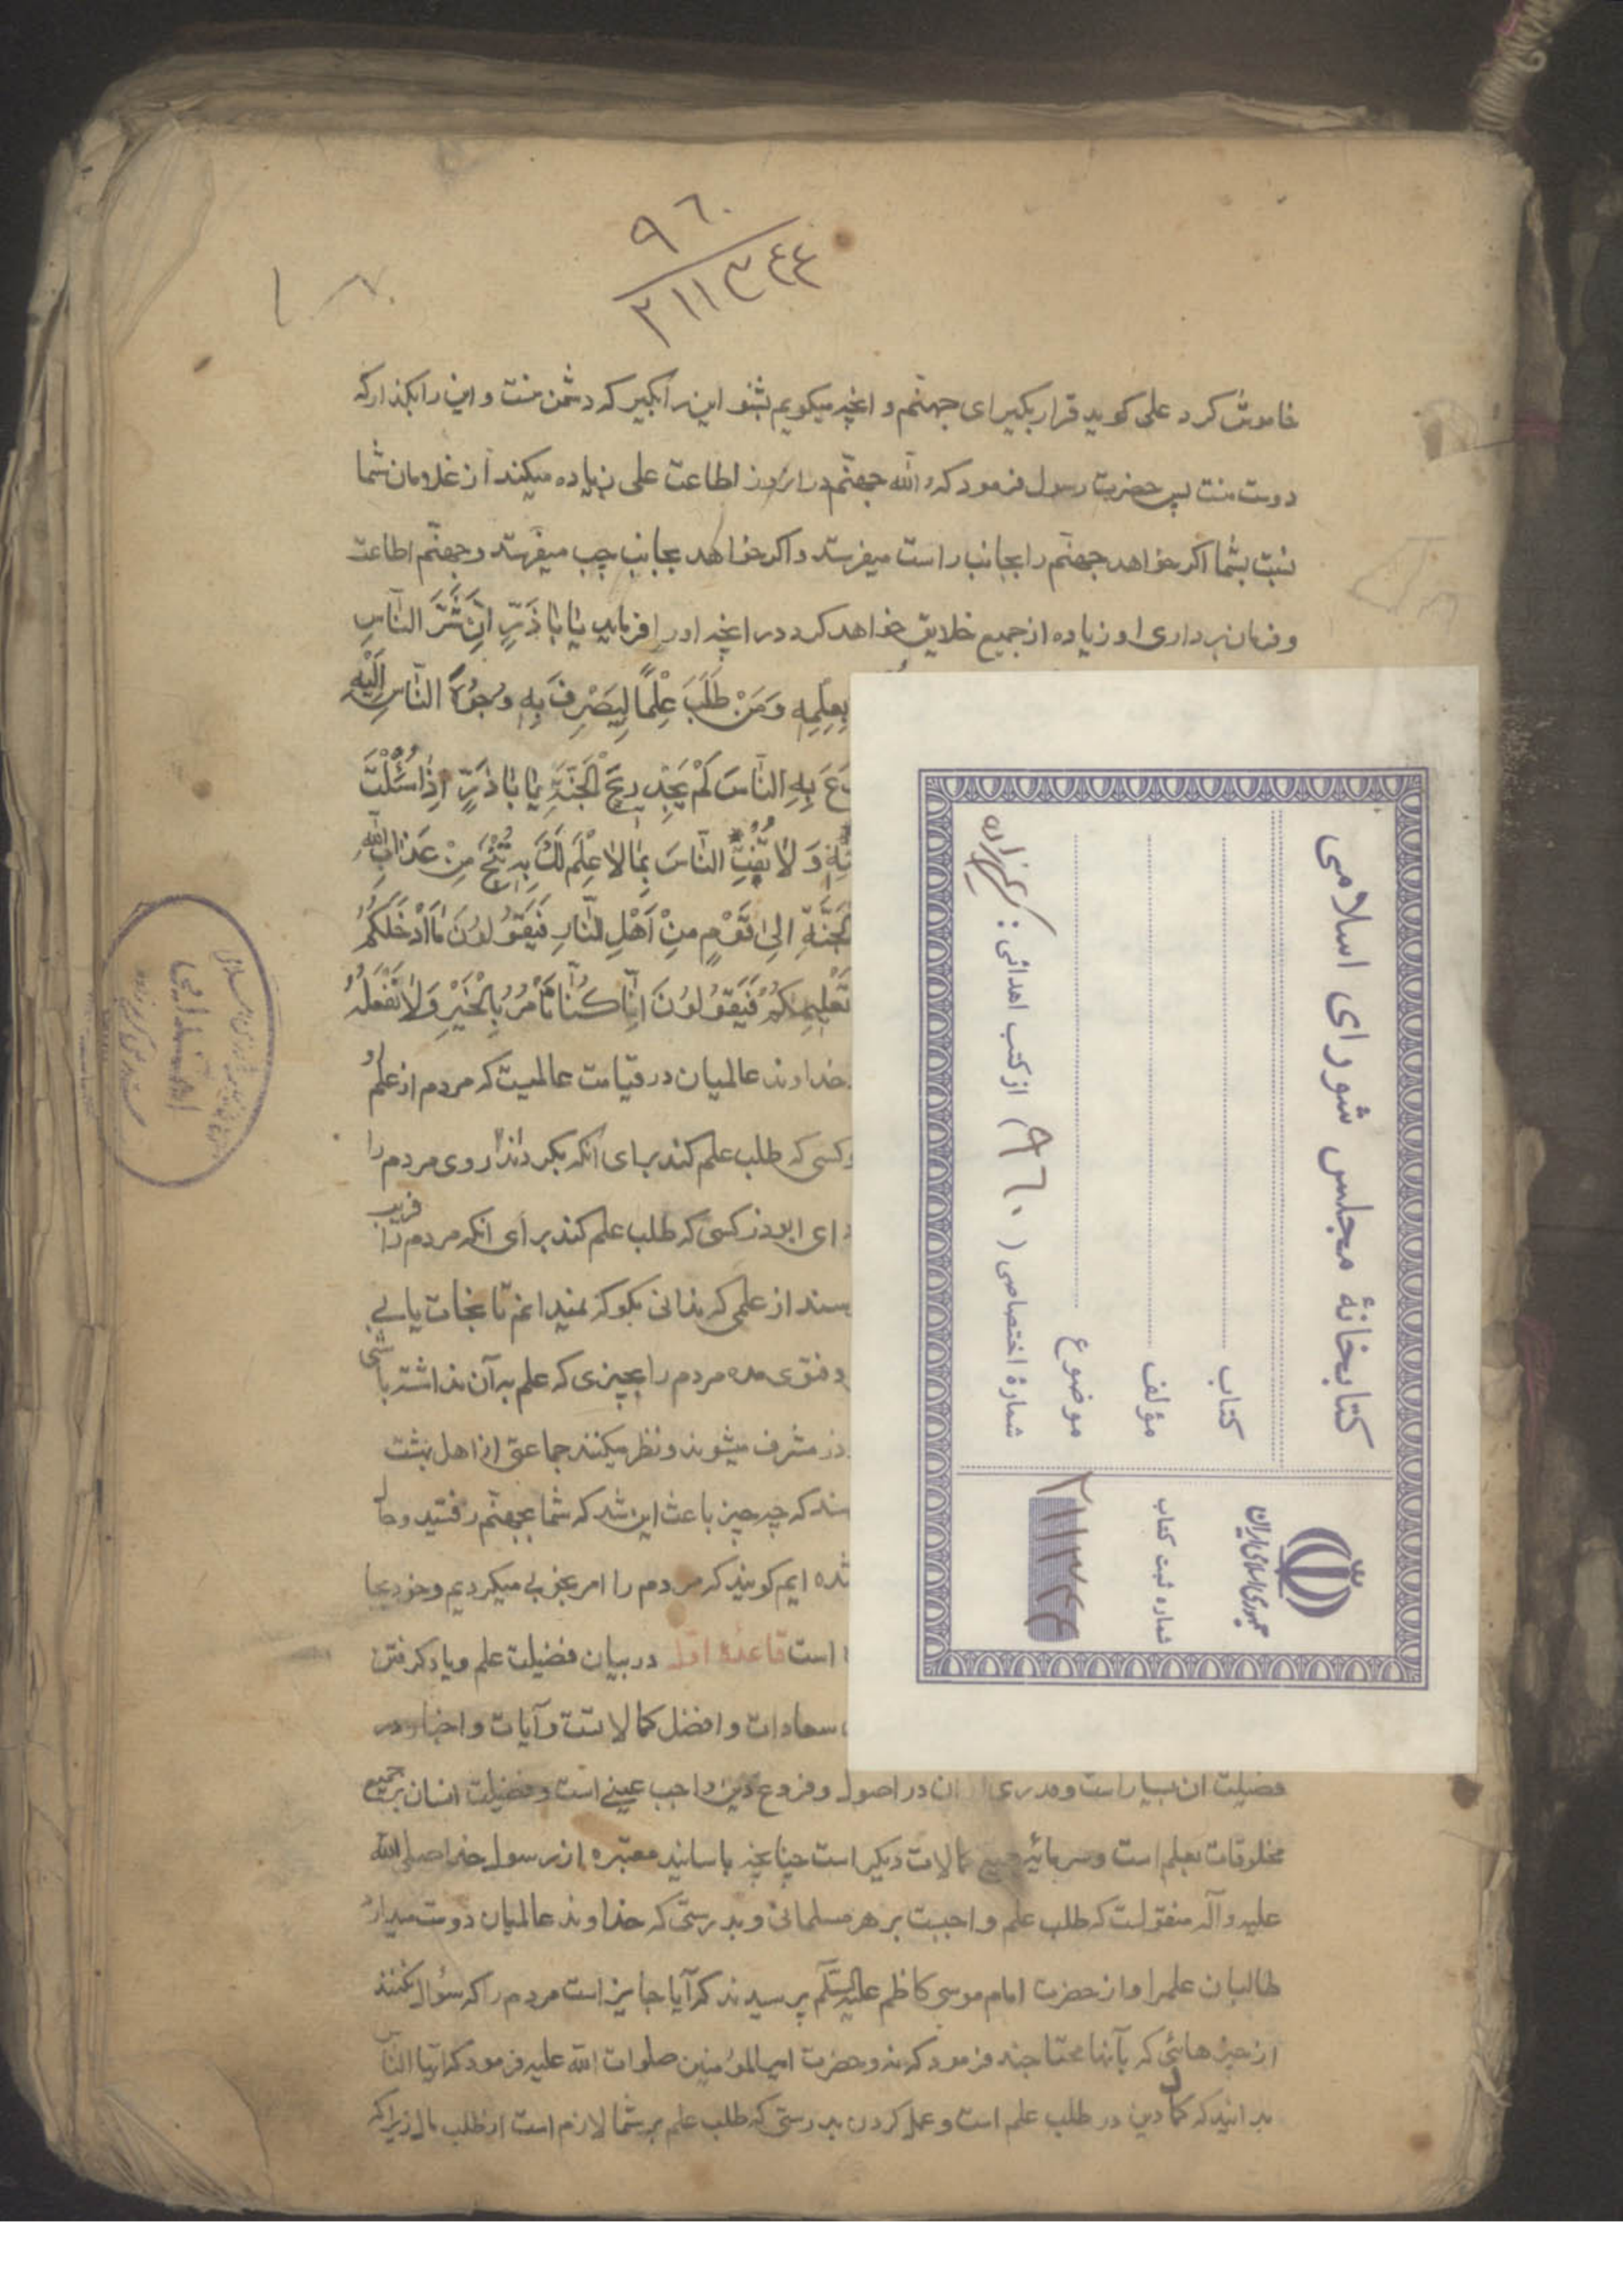 ٩٦٠
٢١١٣٤٤
خاموش کرد علی کوید قرار بکیر ای جهنّم و انچه میکویم بشنو این را بکیر که دشمن منست و این را بکذار که
دوست منست پس حضرت رسول فرمود که والله جهنّم در انروز اطاعت علی زیاده میکند از غلامان شما
نسبت بشما اکر خواهد جهنّم را بجانب راست میفرستد و اکر خواهد بجانب چپ میفرستد و جهنّم اطاعت
و فرمان برداری او زیاده از جمیع خلایق خواهد کرد در انچه او را فرماید یٰا بٰا ذَرٍّ اِنَّ شَرَّ النّٰاسِ
بِعِلْمِهِ وَمَنْ طَلَبَ عِلْمًا لِیَصْرِفَ بِهِ وُجُوهَ النّٰاسِ اِلَیْهِ
بِهِ النّٰاسَ لَمْ یَجِدْ رِیحَ الْجَنَّةِ یٰا بٰا ذَرٍّ اِذٰا سُئِلْتَ
وَلاٰ تُفْتِ النّٰاسَ بِمٰا لاٰ عِلْمَ لَكَ بِهِ تُنْجَ مِنْ عَذٰابِ اللّٰهِ
الْجَنَّةِ اِلیٰ قَوْمٍ مِنْ اَهْلِ النّٰارِ فَیَقُولُونَ مٰا اَدْخَلَکُمُ
تَعْلِیمِکُمْ فَیَقُولُونَ اِنّٰا کُنّٰا نَأْمُرُ بِالْخَیْرِ وَلاٰ نَفْعَلُهُ
خداوند عالمیان در قیامت عالمیست که مردم از علم او
و کسی که طلب علم کند برای انکه بکرداند روی مردم را
ای ابوذر کسی که طلب علم کند برای انکه مردم را فریب
از علمی که ندانی بکو که نمیدانم تا نجات یابی
و فتوی مده مردم را بچیزی که علم به آن نداشته باشی
مشرف میشوند و نظر میکنند جماعتی از اهل بهشت
که چه چیز باعث این شد که شما بجهنّم رفتید و حال
شده ایم کویند که مردم را امر بخوبی میکردیم و خود بجا
است قاعدهٔ اوّل در بیان فضیلت علم و یاد کرفتن
سعادات و افضل کمالاتست و آیات و اخبار در
فضیلت ان بسیار است و ان در اصول و فروع دین واجب عینی است و فضیلت انسان بر جمیع
مخلوقات بعلم است و سرمایهٔ جمیع کمالات دیکر است چنانچه باسانید معتبره از رسول خدا صلی الله
علیه وآله منقولست که طلب علم واجبست بر هر مسلمانی و بدرستی که خداوند عالمیان دوست میدارد
طالبان علم را و از حضرت امام موسی کاظم علیه السّلم پرسیدند که آیا جایز است مردم را که سؤال نکنند
از چیزهائی که بآنها محتاجند فرمود که نه و حضرت امیر المؤمنین صلوات الله علیه فرمود که ایّها النّاس
بدانید که کمال دین در طلب علم است و عمل کردن بدرستی که طلب علم بر شما لازم است از طلب مال زیرا که
کتابخانهٔ مجلس شورای اسلامی
کتاب
مؤلف
موضوع
شمارهٔ اختصاصی ( ٩٦٠ ) از کتب اهدائی :
جمهوری اسلامی ایران
شماره ثبت کتاب
٢١١٣٤٤